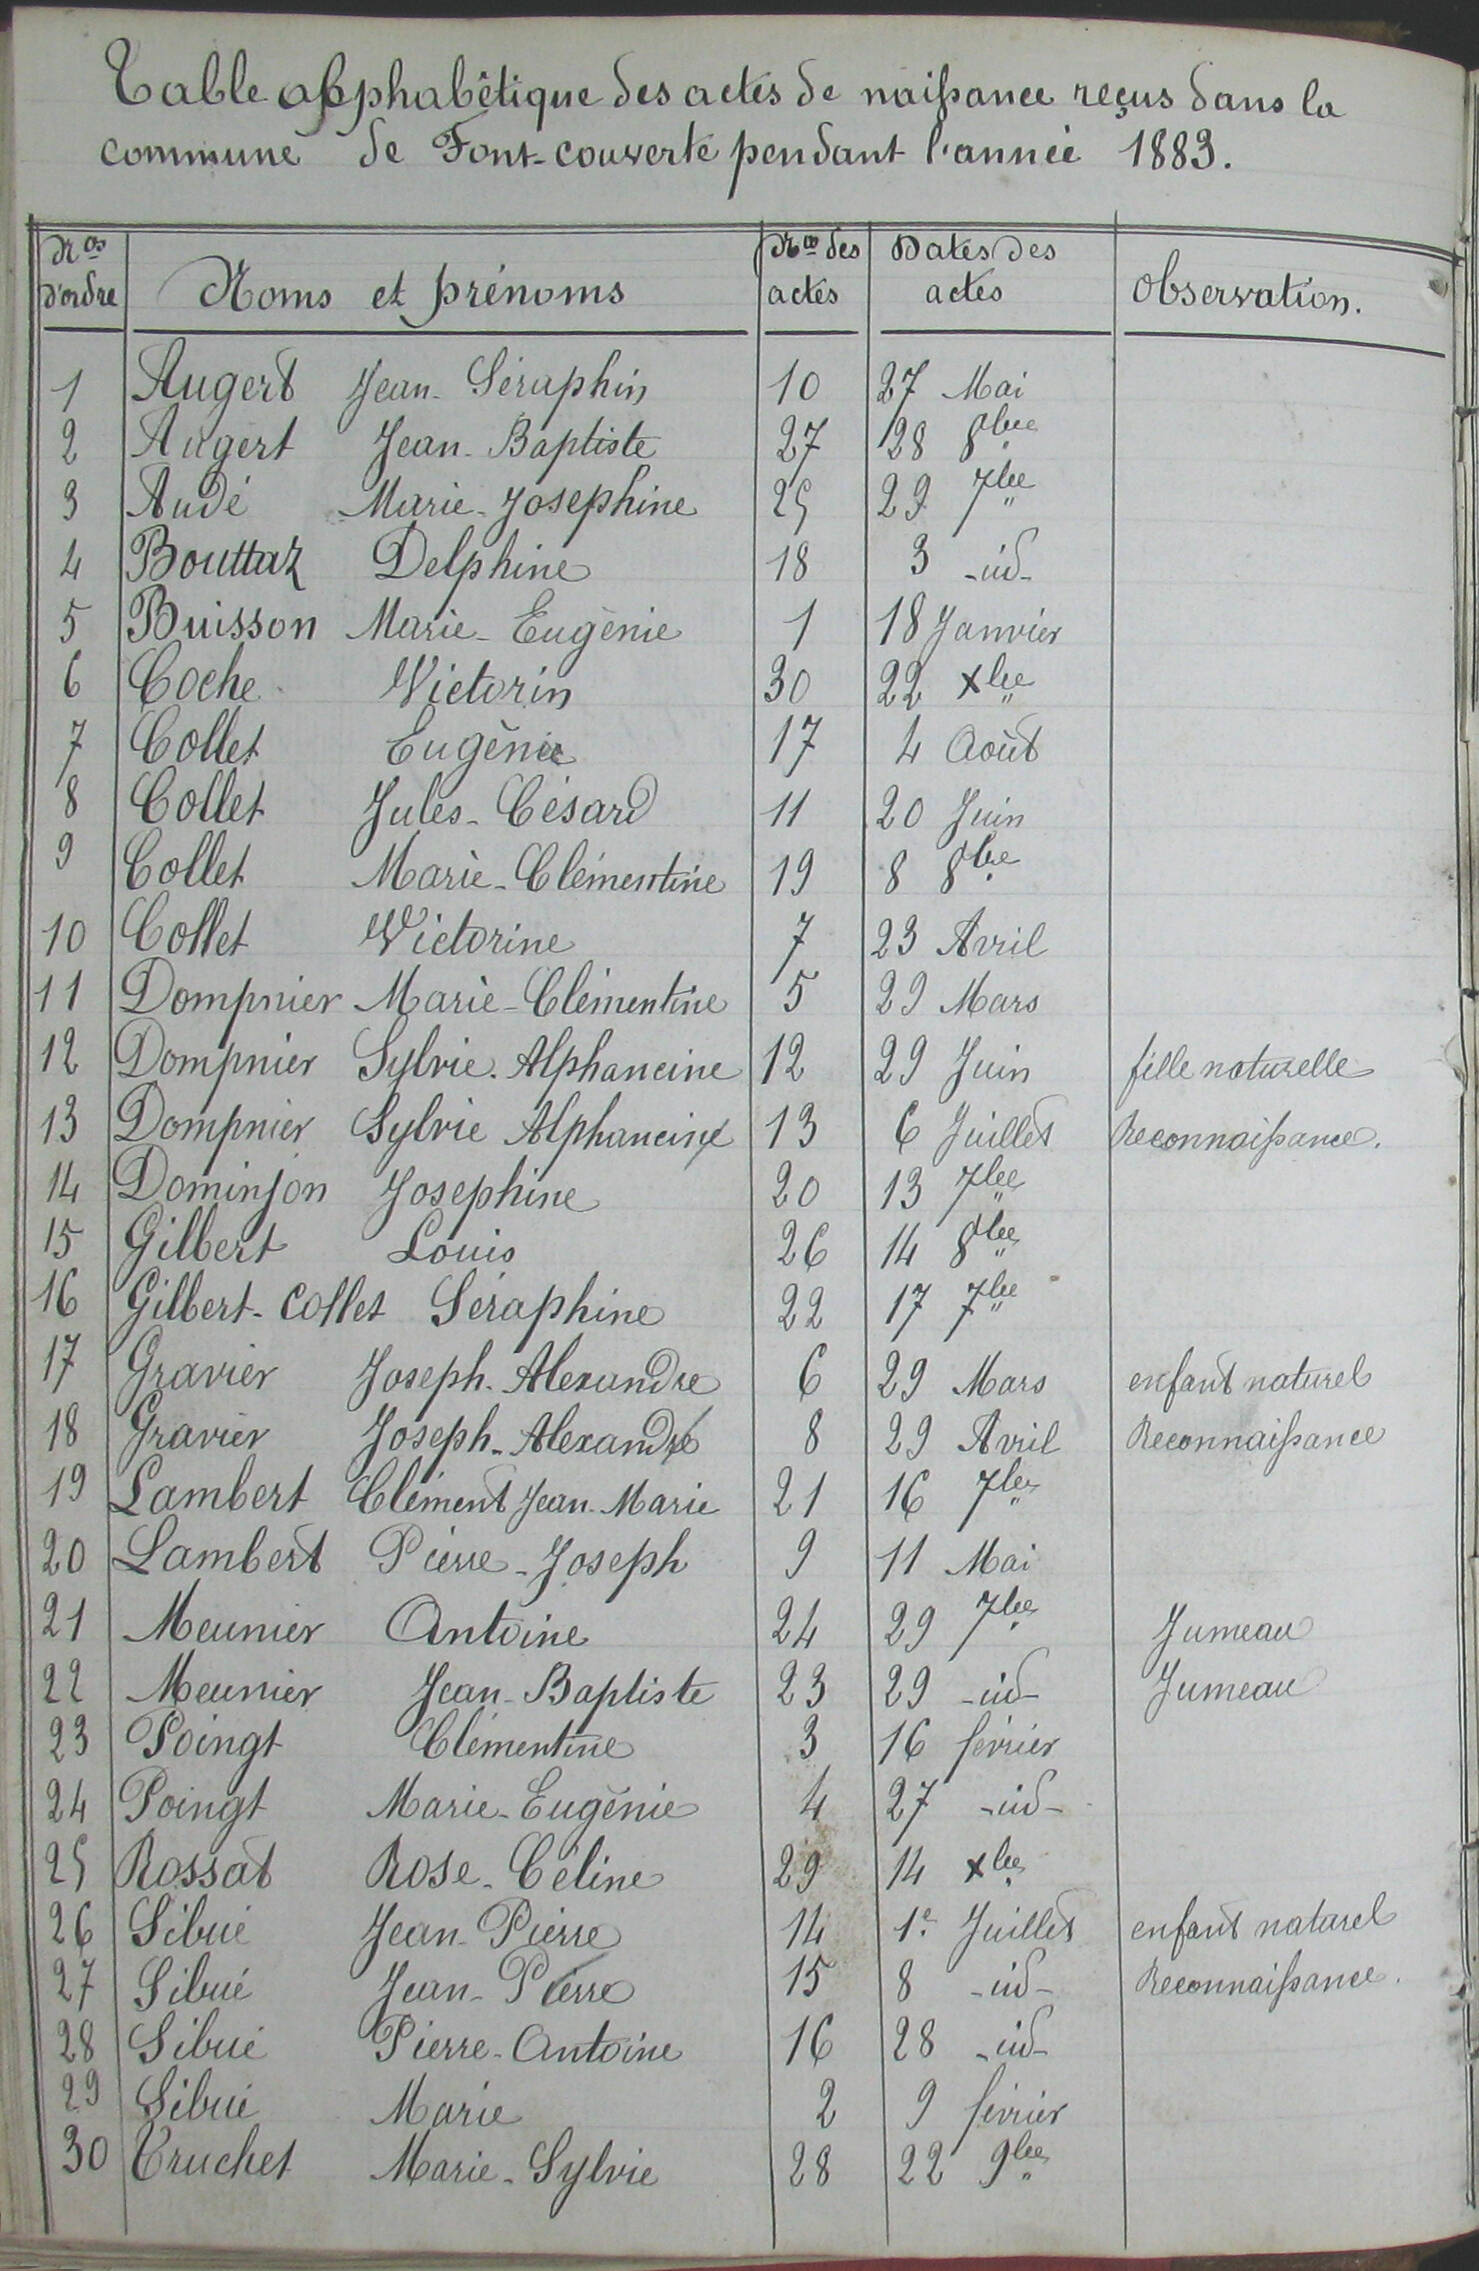 Table alpphabêtique des actes de naissance reçus dans la
commune de Font-couverte pendant l'année 1883.
Nos d'ordre Noms et prénoms Nos des actes Dates des actes Observation.
1 Augert Jean-Séraphin 10 27 Mai
2 Augert Jean-Baptiste 27 28 8bre
3 Audé Marie-Josephine 25 29 7bre
4 Bouttaz Delphine 18 3 -id-
5 Buisson Marie-Eugènie 1 18 Janvier
6 Coche Victorin 30 22 Xbre
7 Collet Eugènie 17 4 Août
8 Collet Jules-Césard 11 20 Juin
9 Collet Marie-Clémentine 19 8 8bre
10 Collet Victorine 7 23 Avril
11 Dompnier Marie-Clémentine 5 29 Mars
12 Dompnier Sylvie-Alphancine 12 29 Juin fille naturelle
13 Dompnier Sylvie Alphancine 13 6 Juillet Reconnaissance.
14 Dominjon Josephine 20 13 7bre
15 Gilbert Louis 26 14 8bre
16 Gilbert-Collet Séraphine 22 17 7bre
17 Gravier Joseph-Alexandre 6 29 Mars enfant naturel
18 Gravier Joseph-Alexandre 8 29 Avril Reconnaissance
19 Lambert Clément Jean-Marie 21 16 7bre
20 Lambert Pierre-Joseph 9 11 Mai
21 Meunier Antoine 24 29 7bre Jumeau
22 Meunier Jean-Baptiste 23 29 -id- Jumeau
23 Poingt Clémentine 3 16 février
24 Poingt Marie-Eugènie 4 27 -id-
25 Rossat Rose-Céline 29 14 Xbre
26 Sibué Jean-Pierre 14 1er Juillet enfant naturel
27 Sibué Jean-Pierre 15 8 -id- Reconnaissance.
28 Sibué Pierre-Antoine 16 28 -id-
29 Sibué Marie 2 9 février
30 Truchet Marie-Sylvie 28 22 9bre